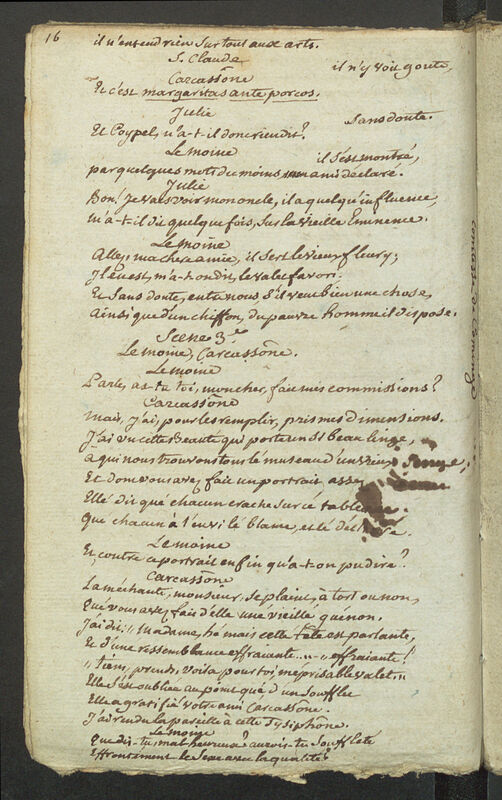 16
il n'entend rien surtout aux arts.
S. Claude
il n'y voit goute,
Carcassône
Et c'est margaritas ante porcos.
Julie
Sans doute.
Et Coypel, n'a-t-il donc rien dit?
Lemoine
il s'est montré,
par quelques mots du moins mon ami déclaré.
Julie
Bon! je vais voir mon oncle, il a quelqu'influence,
m'a-t-il dit quelque fois, sur la vieille Eminence.
Lemoine
Allez, ma chere amie, il sert le vieux fleury;
Il en est, m'a-t-on dit, le valet favori.
Et sans doute, entre nous s'il veut bien une chose,
Ainsi que d'un chiffon, du pauvre homme il dispose.
Scene 3e
Lemoine, Carcassône.
Lemoine
Parle, as-tu toi, mon cher, fait mes commissions?
Carcassône
Mais, j'ai, pour les remplir, pris mes dimensions.
J'ai vu cette Beauté qui porte un si beau linge,
à qui nous trouvons tous le museau d'un vieux Singe,
Et dont vous avez fait un portrait assez
Elle dit que chacun crache sur ce tableau
Que chacun à l'envi le blame, et le
Lemoine
Et contre ce portrait enfin qu'a-t-on pu dire?
Carcassône
La méchante, monsieur, se plaint, à tort ou non,
Que vous avez fait d'elle une vieille guenon.
J'ai dit: " Madame, hé mais cette tête est parlante,
Et d'une ressemblance effraiante....." effraiante!
" tiens, prends, voila pour toi, meprisable valet, "
Elle s'est oubliée au point que d'un soufflet
Elle a gratifié votre ami Carcassône.
J'ai rendu la pareille à cette Tysiphône.
Que dis-tu, malheureux? aurois-tu souffleté
Effrontement le Sexe avec la qualité?